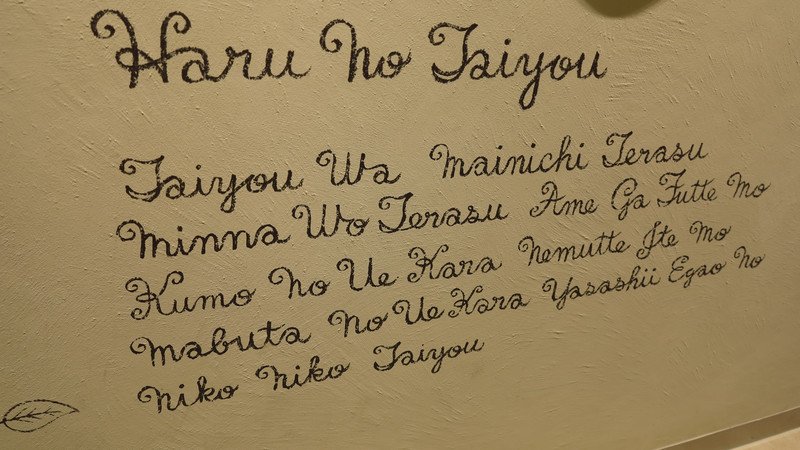 Haru No Taiyou
Taiyou Wa Mainichi Terasu
Minna Wo Terasu Ame Ga Futte Mo
Kumo No Ue Kara Nemutte Ite Mo
Mabuta No Ue Kara Yasashii Egao No
Niko Niko Taiyou